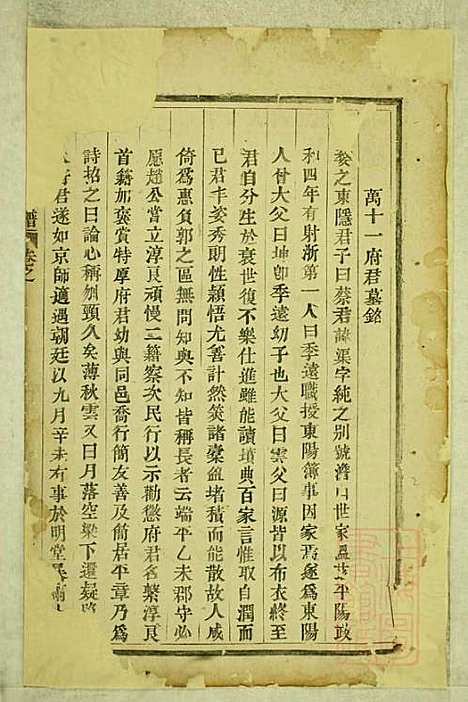 萬十一府君墓銘
婺之東隱君子曰蔡君諱渠字純之别號濟川世家溫平陽政
和四年有射浙第一人曰季遠職授東陽簿事因家焉遂爲東陽
人曾大父曰坤卽季遠幼子也大父曰雲父曰源皆以布衣終至
君自分生於衰世復不樂仕進雖能讀墳典百家言惟取自潤而
已君丰姿秀明性穎悟尤善計然筴諸橐盆堵積而能散故人咸
倚爲惠負郭之區無問知與不知皆稱長者云端平乙未郡守必
愿趙公嘗立淳良頑慢二籍察次民行以示勸懲府君名繫淳良
首籍加褒賞特厚府君幼與同邑喬行簡友善及簡居平章乃爲
詩招之曰論心稱刎頸久矣薄秋雲又曰月落空梁下還疑
府君遂如京師適遇朝廷以九月辛未有事於明堂
譜 卷之